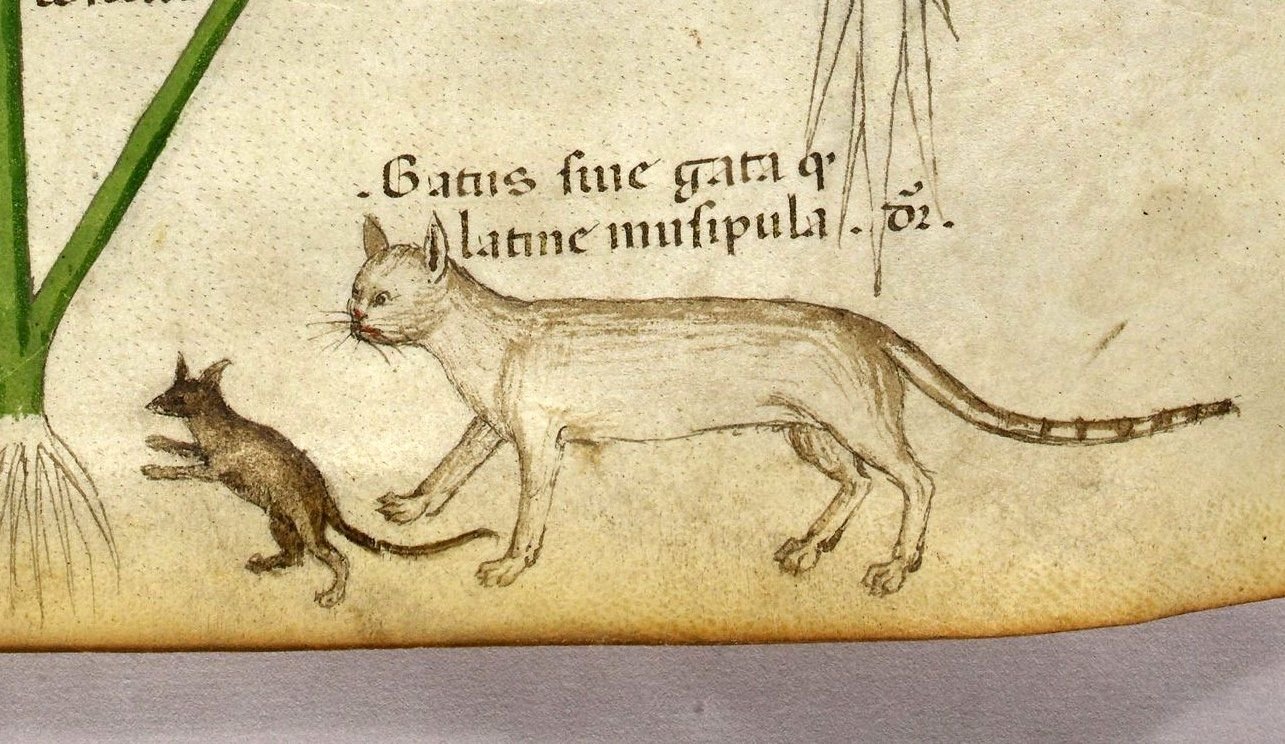 .Gatus siue gata qr
latine musipula . dr̄.